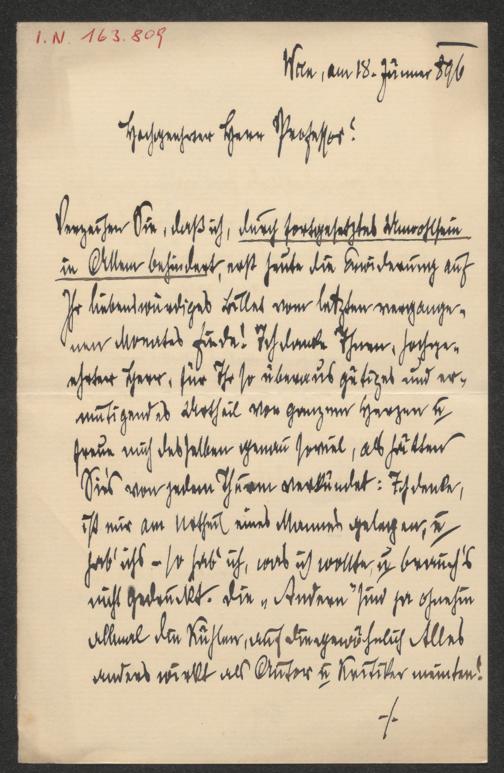 I.N. 163.809
Wien, am 18. Jänner 896
Hochgeehrter Herr Professor!
Verzeihen Sie, daß ich, durch fortgesetztes Unwohlsein
in Allem behindert, erst heute die Erwiderung auf
Ihr liebenswürdiges Billet vom letzten vergange-
nen Monates sende! Ich danke Ihnen, hochge-
ehrter Herr, für Ihr so überaus gütiges und er-
mutigendes Urtheil von ganzem Herzen u
freue mich desselben genau soviel, als hätten
Sie's von jedem Thurm verkündet: Ich denke,
ist mir am Urtheil eines Mannes gelegen, u
hab' ichs – so hab' ich, was ich wollte, u brauch's
nicht gedruckt. Die „Andern" sind ja ohnehin
allemal die Kühlen, auf die gewöhnlich Alles
anders wirkt als Autor u Kritiker meinten!
-/-